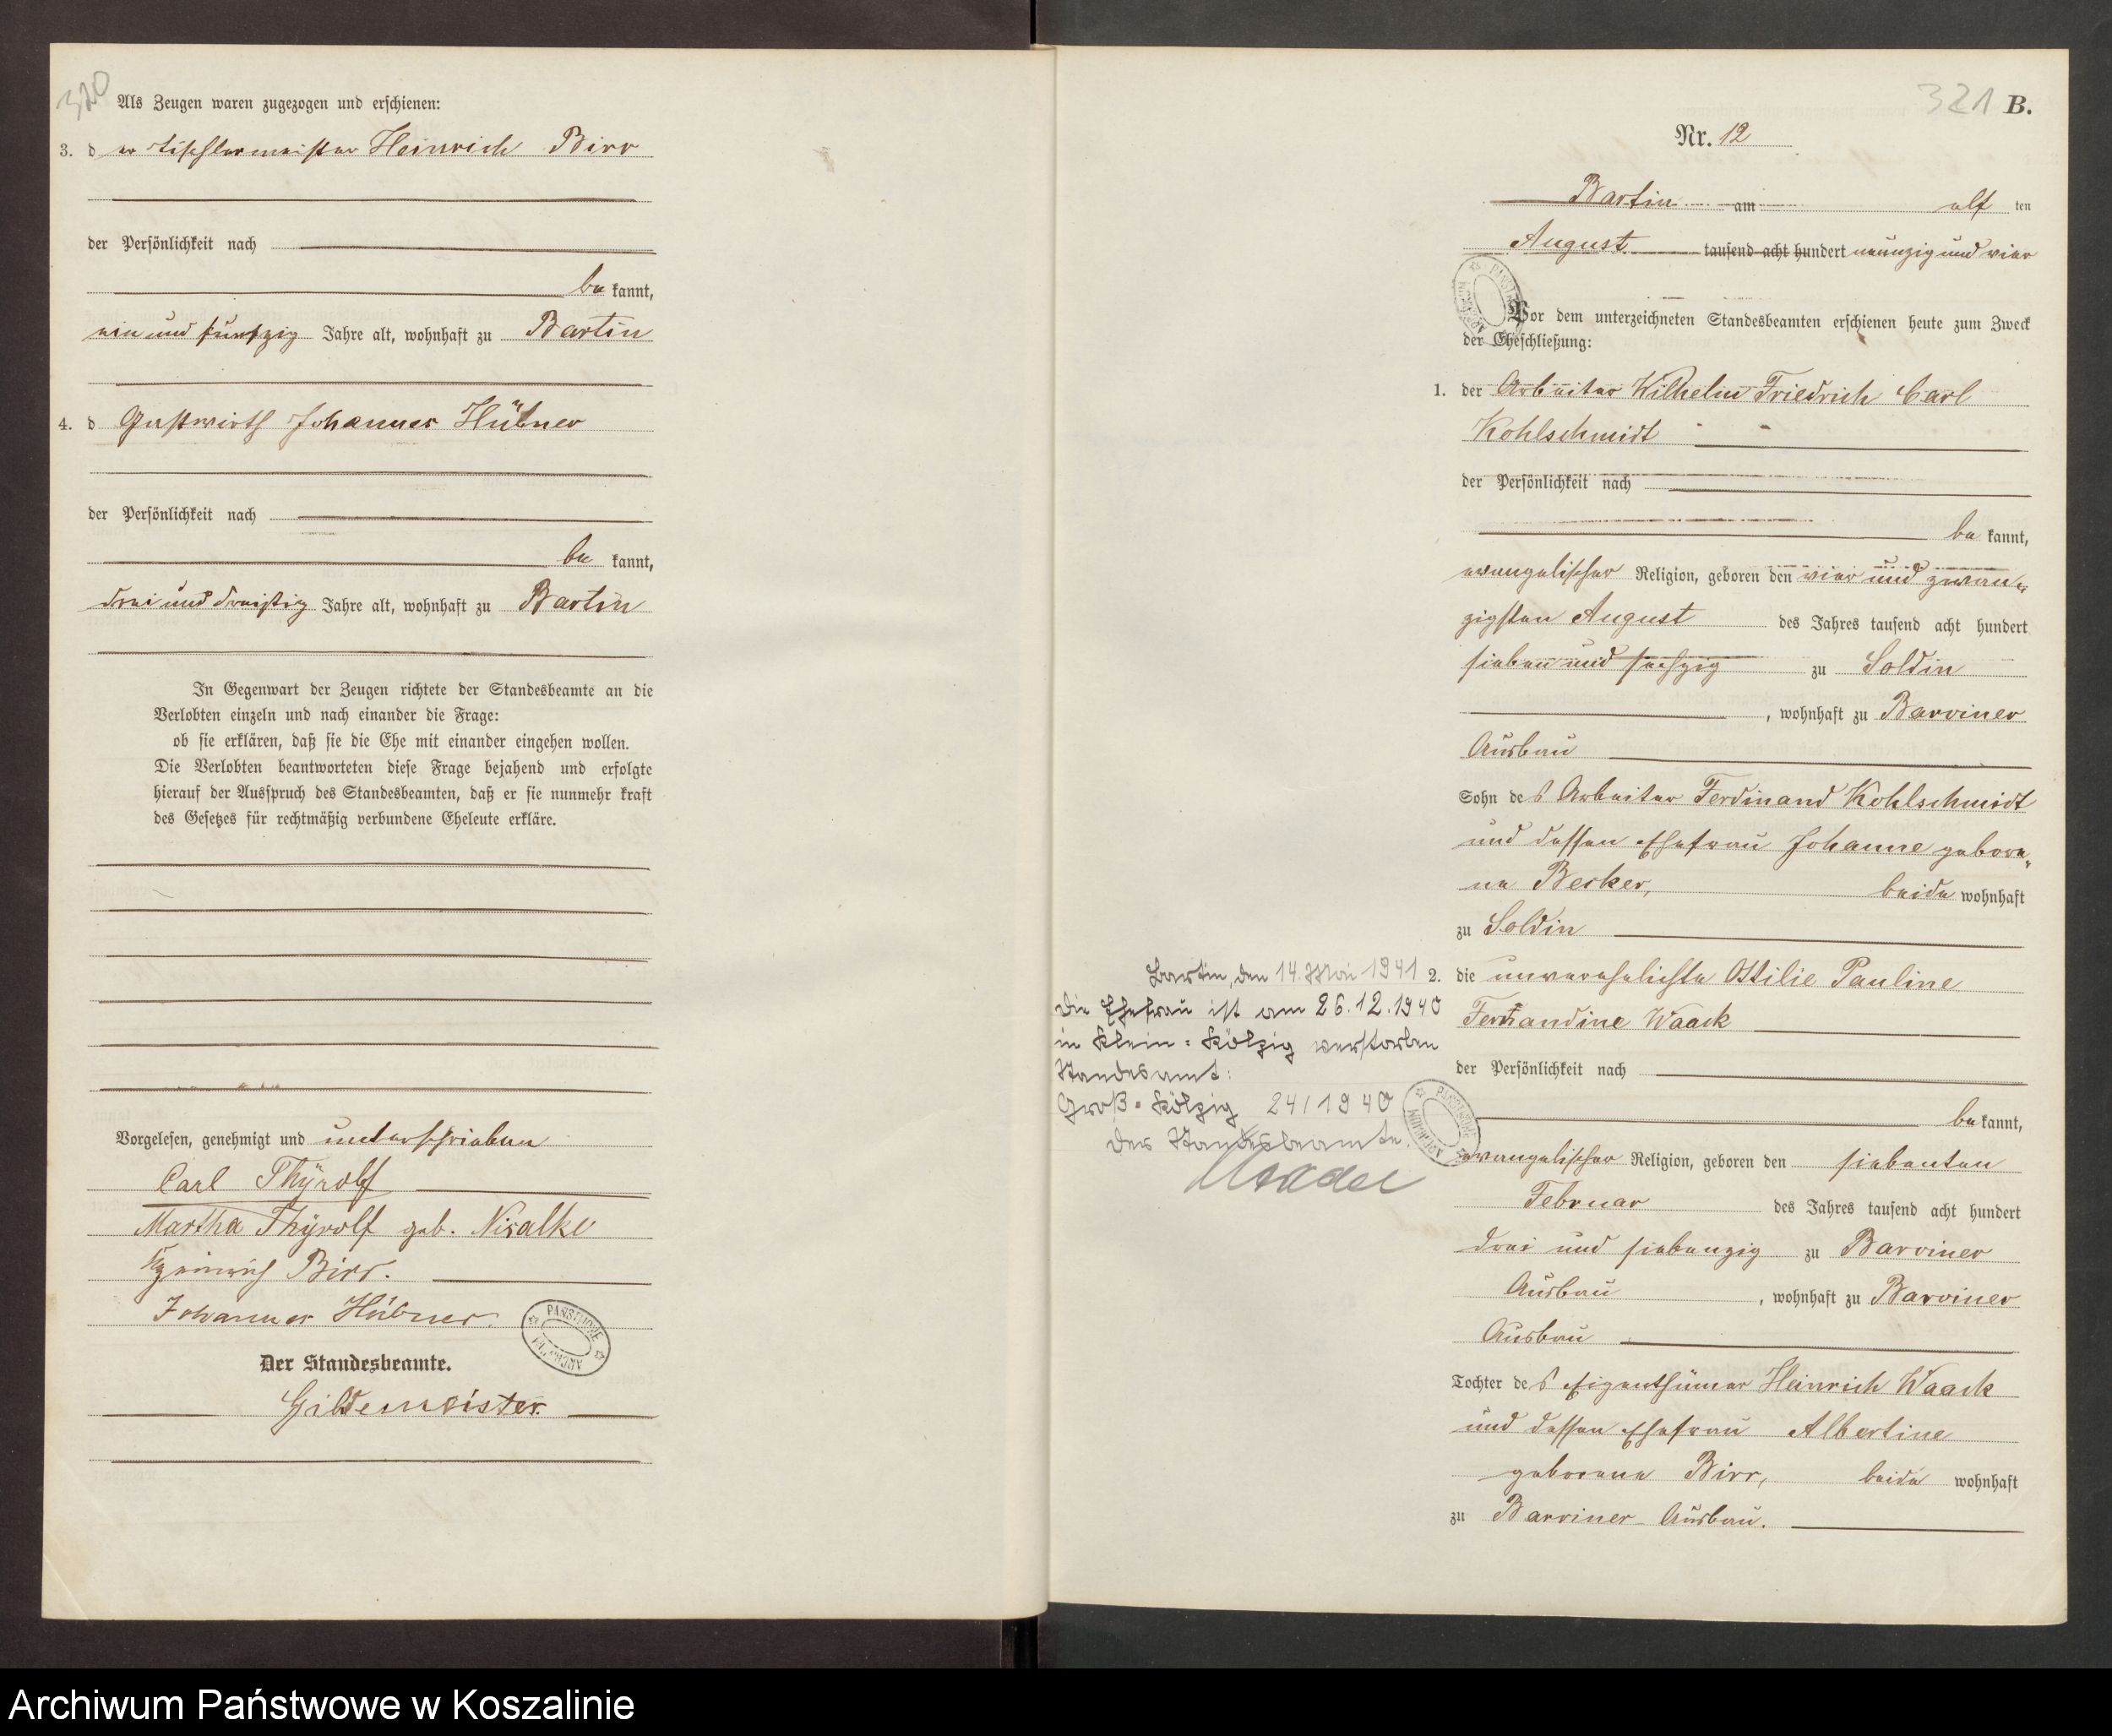 320
Als Zeugen waren zugezogen und erschienen:
3. d er Tischlermeister Heinrich Birr
der Persönlichkeit nach
be kannt,
ein und fünfzig Jahre alt, wohnhaft zu Bartin
4. d Gastwirth Johannes Hübner
der Persönlichkeit nach
be kannt,
drei und dreißig Jahre alt, wohnhaft zu Bartin
In Gegenwart der Zeugen richtete der Standesbeamte an die
Verlobten einzeln und nach einander die Frage:
ob sie erklären, daß sie die Ehe mit einander eingehen wollen.
Die Verlobten beantworteten diese Frage bejahend und erfolgte
hierauf der Ausspruch des Standesbeamten, daß er sie nunmehr kraft
des Gesetzes für rechtmäßig verbundene Eheleute erkläre.
Vorgelesen, genehmigt und unterschrieben
Carl Thÿrolf
Martha Thÿrolf geb.
Heinrich Birr.
Johannes Hübner.
PAŃSTWOWE ARCHIWUM
Der Standesbeamte.
Gildemeister.
321 B.
Nr. 12
Bartin am elf ten
August tausend acht hundert neunzig und vier
Vor dem unterzeichneten Standesbeamten erschienen heute zum Zweck
der Eheschließung:
1. der Arbeiter Wilhelm Friedrich Carl
Kohlschmidt
der Persönlichkeit nach
be kannt,
evangelischer Religion, geboren den vier und zwan„
zigsten August des Jahres tausend acht hundert
sieben und sechzig zu Soldin
, wohnhaft zu Barviner
Ausbau
Sohn de s Arbeiter Ferdinand Kohlschmidt
und dessen Ehefrau Johanne gebore„
ne Becker, beide wohnhaft
zu Soldin
2. die unverehelichte Ottilie Pauline
Ferdinandine Waack
der Persönlichkeit nach
be kannt,
evangelischer Religion, geboren den siebenten
Februar des Jahres tausend acht hundert
drei und siebenzig zu Barviner
Ausbau , wohnhaft zu Barviner
Ausbau
Tochter de s Eigenthümer Heinrich Waack
und dessen Ehefrau Albertine
geborene Birr, beide wohnhaft
zu Barviner Ausbau.
Bartin, den 14. Mai 1941
Die Ehefrau ist am 26.12.1940
in Klein-Kölzig verstorben
Standesamt:
Groß-Kölzig 24/1940
Der Standesbeamte.
PAŃSTWOWE ARCHIWUM
Archiwum Państwowe w Koszalinie